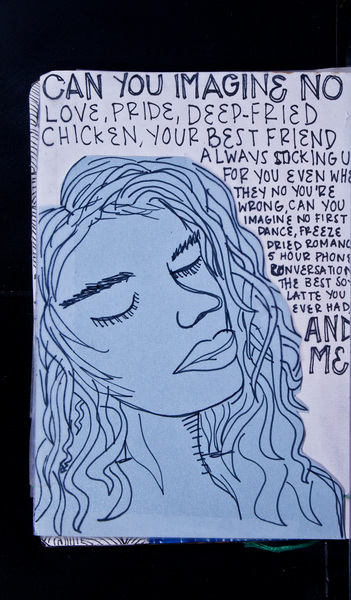 CAN YOU IMAGINE NO
LOVE, PRIDE, DEEP-FRIED
CHICKEN, YOUR BEST FRIEND
ALWAYS STICKING U
FOR YOU EVEN WHE
THEY NO YOU'RE
WRONG, CAN YOU
IMAGINE NO FIRST
DANCE, FREEZE
DRIED ROMANC
5 HOUR PHONE
CONVERSATION
THE BEST SOY
LATTE YOU
EVER HAD,
AND
ME